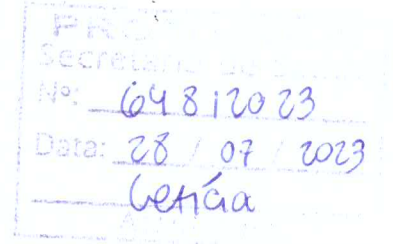 PRO
Secretaria
Nº: 648/2023
Data: 28 / 07 / 2023
Letícia